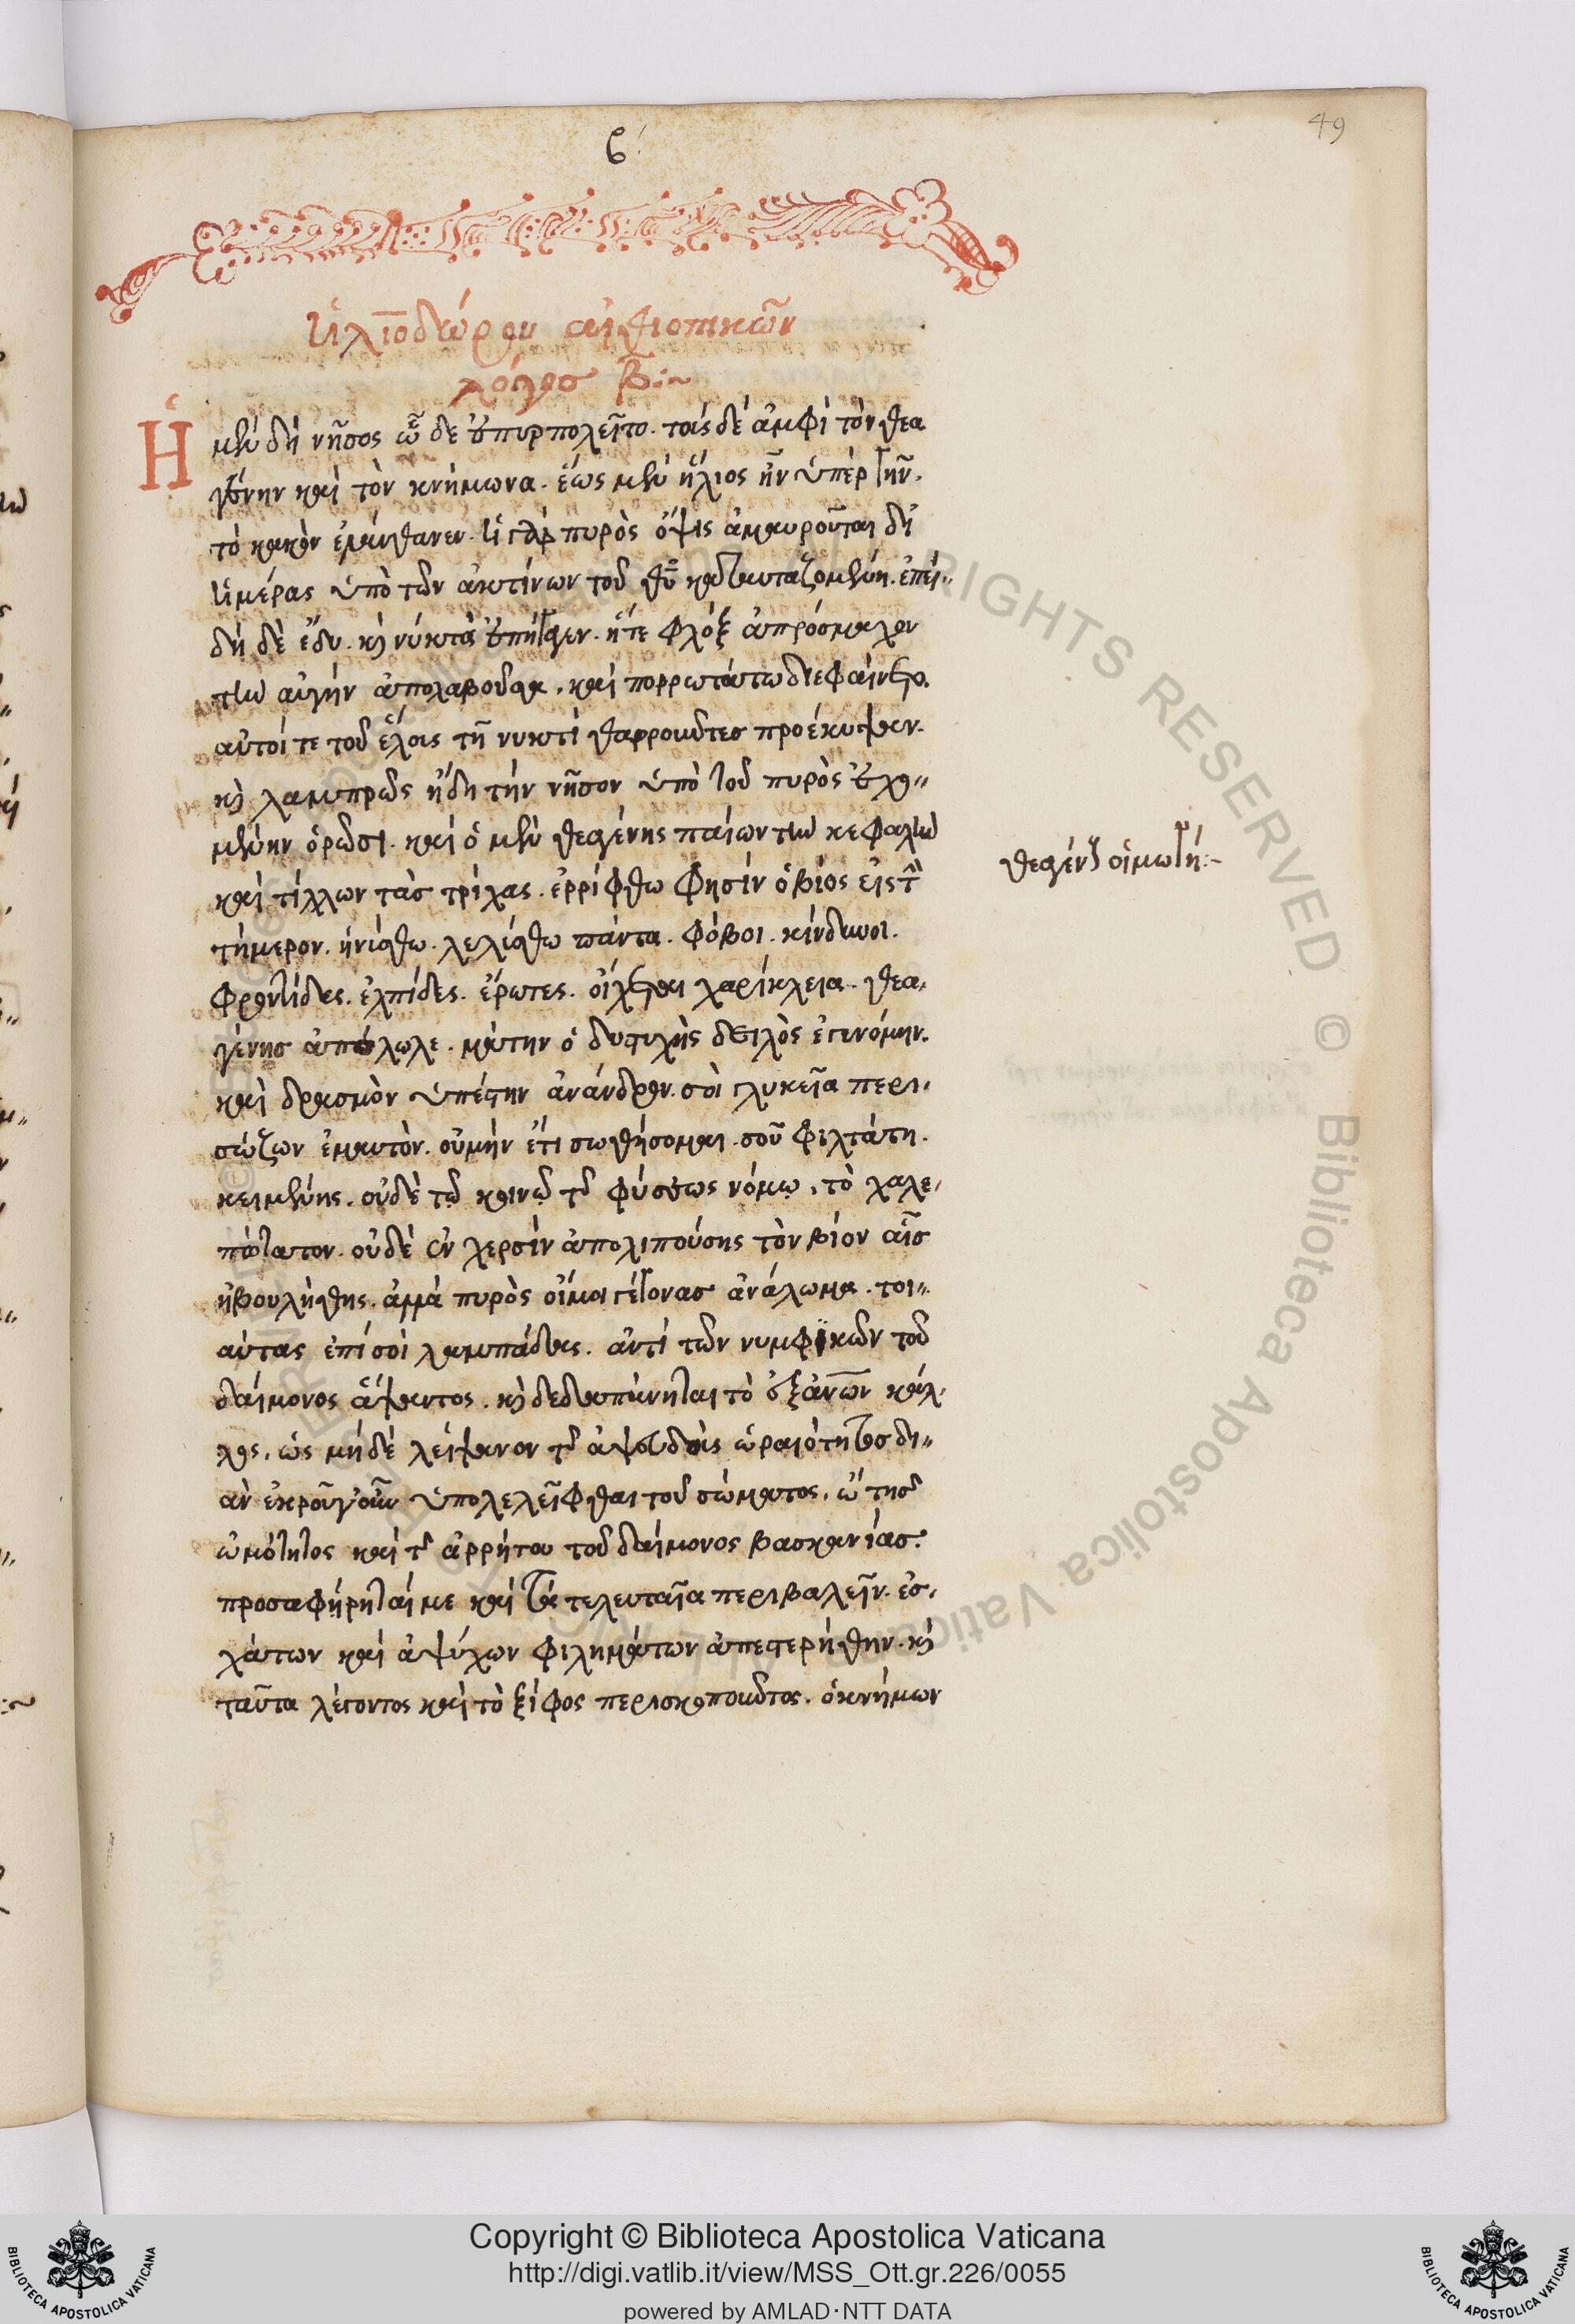 49
β΄
ἡλιοδώρου αἰθιοπικῶν
λόγος β:~
Ἡ μὲν δὴ νῆσος ὧδε ἐπυρπολεῖτο. τοὺς δὲ ἀμφὶ τὸν θεα
γένην καὶ τὸν κνήμωνα. ἕως μὲν ἥλιος ἦν ὑπὲρ γῆν.
τὸ κακὸν ἐλάνθανεν. ἡ γὰρ πυρὸς ὄψις ἀμαυροῦται δι'
ἡμέρας ὑπὸ τῶν ἀκτίνων τοῦ θυ καταυγαζομένη. ἐπει„
δὴ δὲ ἔδυ. κ νύκτα ἐπῆγεν. ἥτε φλὸξ ἀπρόσμαχον
τὴν αὐγὴν ἀπολαβοῦσα, καὶ πορρωτάτω διεφαίνετο.
αὐτοί τε τοῦ ἕλους τῇ νυκτὶ θαρρουντες προέκυψαν.
κ λαμπρῶς ἤδη τὴν νῆσον ὑπὸ τοῦ πυρὸς ἐχο„
μένην ὁρῶσι. καὶ ὁ μὲν θεαγένης παίων τὴν κεφαλὴν
καὶ τίλλων τὰς τρίχας. ἐρρίφθω φησὶν ὁ βίος εἰς τὴν
τήμερον. ἡνίσθω. λελύσθω πάντα. φόβοι. κίνδυνοι.
φροντίδες. ἐλπίδες. ἔρωτες. οἴχεται χαρίκλεια. θεα,
γένης ἀπόλωλε. μάτην ὁ δυστυχὴς δειλὸς ἐγενόμην.
καὶ δρασμὸν ὑπέστην ἄνανδρον. σοὶ γλυκεῖα περι,
σώζων ἐμαυτὸν. οὐ μὴν ἔτι σωθήσομαι. σοῦ φιλτάτη.
κειμένης. οὐδὲ τῷ κοινῷ τῆς φύσεως νόμῳ, τὸ χαλε,
πώτατον. οὐδὲ ἐν χερσὶν ἀπολιπούσης τὸν βίον αἷς
ἠβουλήθης. ἀλλὰ πυρὸς οἴμοι γέγονας ἀνάλωμα. τοι„
αύτας ἐπὶ σοὶ λαμπάδας. ἀντὶ τῶν νυμφικῶν τοῦ
δαίμονος ἅψαντος. κ δεδαπάνηται τὸ ἐξ ἀνων κάλ,
λος. ὡς μὴ δὲ λείψανον τῆς ἀψευδοῦς ὡραιότητος δι„
ὰν ὑπολελεῖφθαι τοῦ σώματος. ὢ τῆς
ὠμότητος καὶ τῆς ἀρρήτου τοῦ δαίμονος βασκανίας.
προσαφήρηταί με καὶ τὰ τελευταῖα περιβαλεῖν. ἐσ,
χάτων καὶ ἀψύχων φιλημάτων ἀπεστερήθην. κ
ταῦτα λέγοντος καὶ τὸ ξίφος περισκοπουντος. ὁ κνήμων
θεαγένους οἰμωγή:~
Copyright © Biblioteca Apostolica Vaticana
http://digi.vatlib.it/view/MSS_Ott.gr.226/0055
powered by AMLAD·NTT DATA
BIBLIOTECA APOSTOLICA VATICANA
BIBLIOTECA APOSTOLICA VATICANA